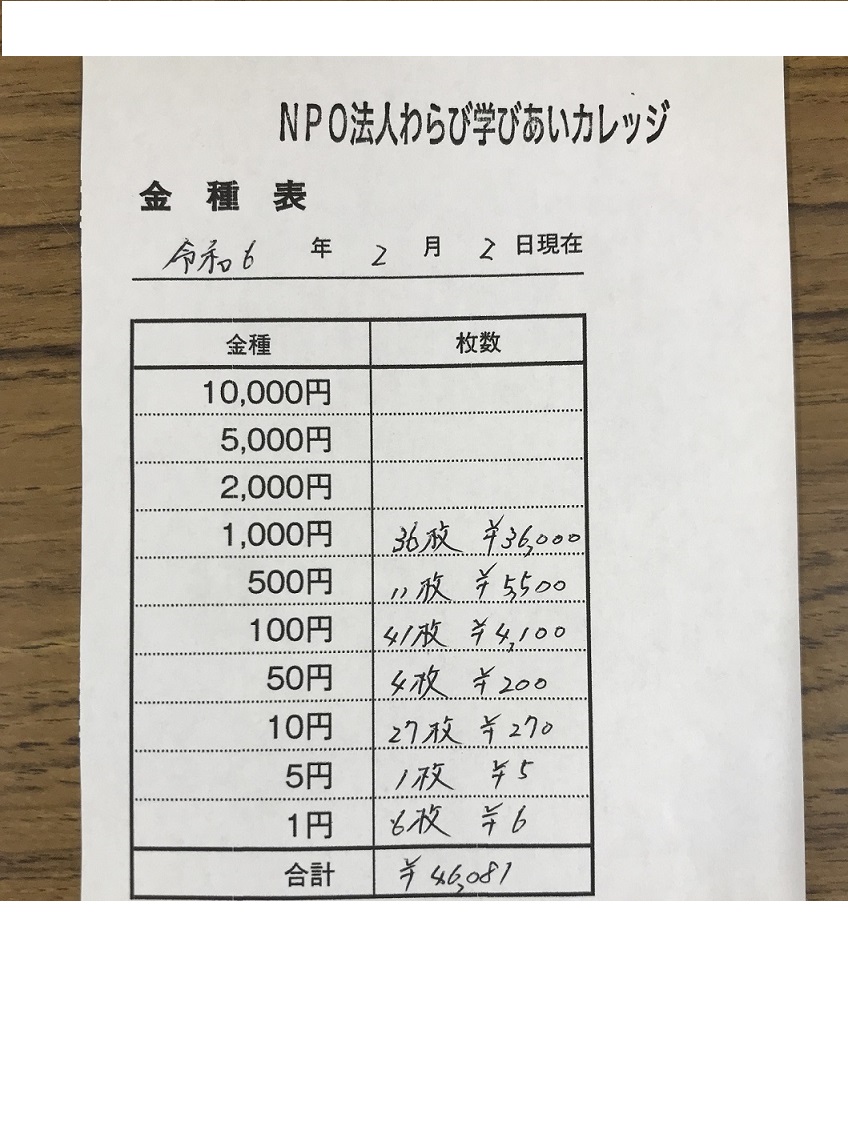 NPO法人わらび学びあいカレッジ
金種表
令和6年2月2日現在
金種 枚数
10,000円
5,000円
2,000円
1,000円 36枚 ¥36,000
500円 11枚 ¥5,500
100円 41枚 ¥4,100
50円 4枚 ¥200
10円 27枚 ¥270
5円 1枚 ¥5
1円 6枚 ¥6
合計 ¥46,081